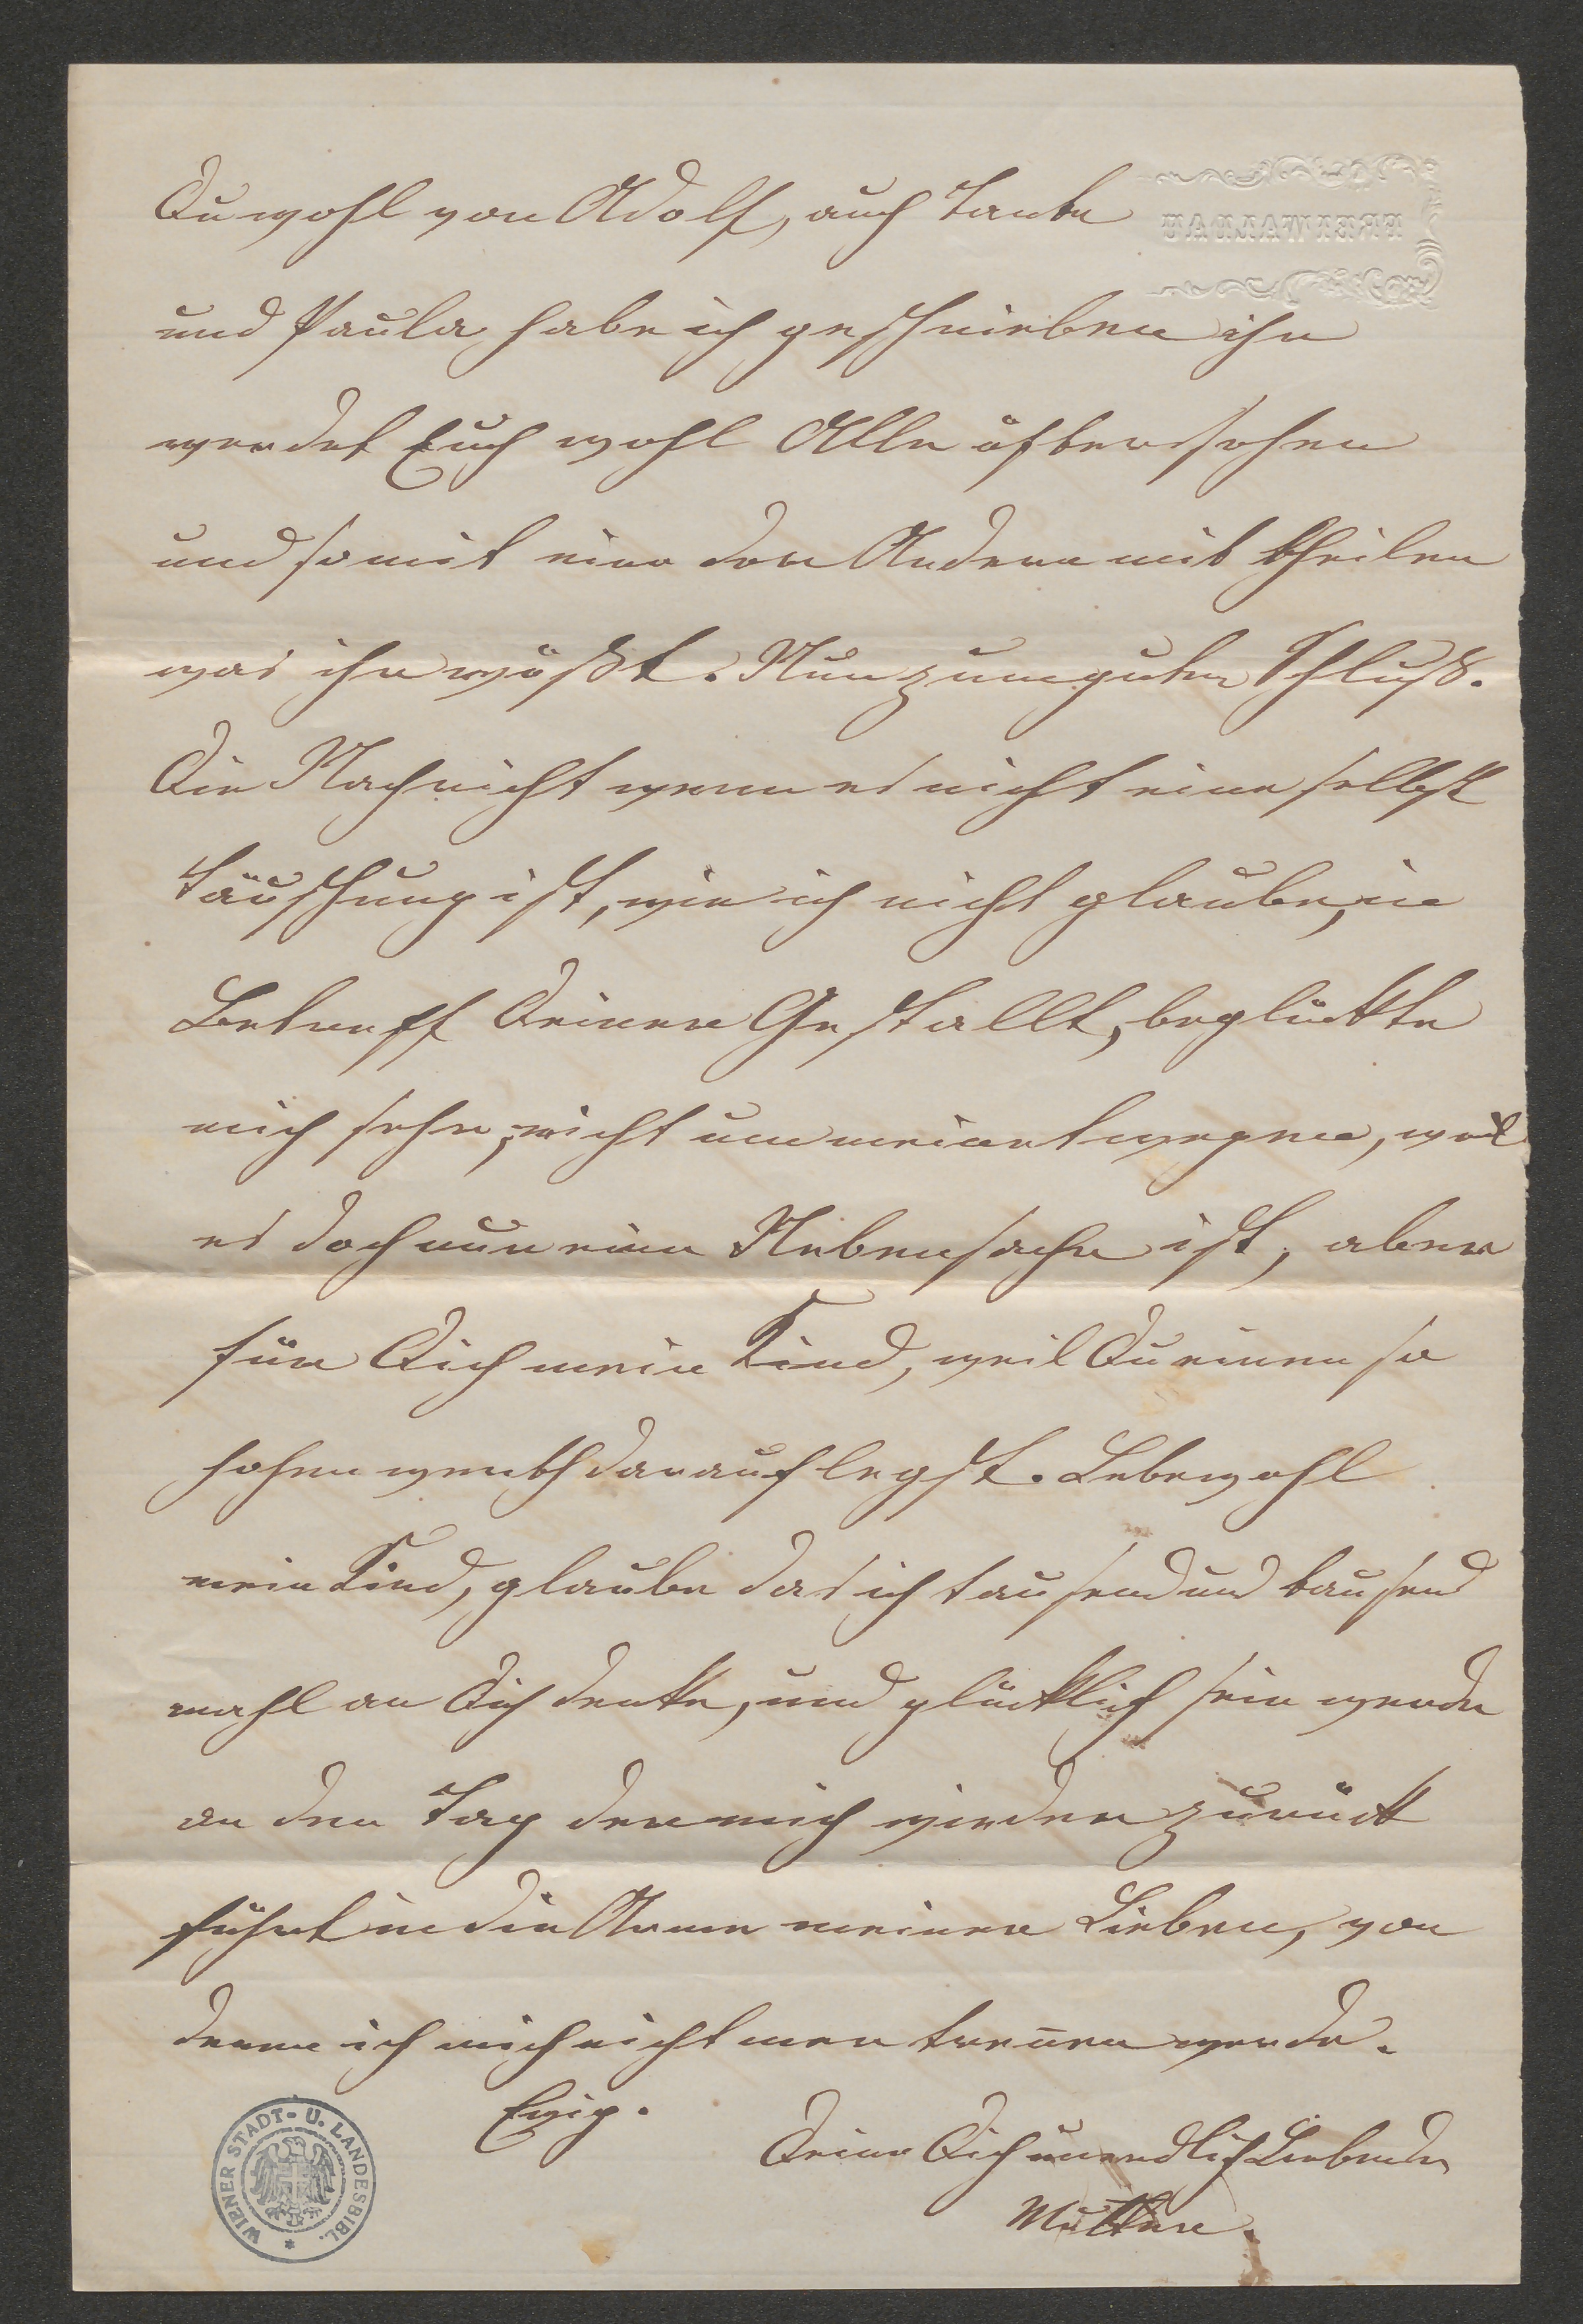 Du wohl von Adolf, auch Tante
FREIWALDAU
und Paula habe ich geschrieben ihr
werdet Euch wohl Alle öfter sehen
und somit einer den Andern mit theilen
was ihr wößt. Nun zum guten Schluß.
Die Nachricht wenn es nicht eine selbst
täuschung ist, wie ich nicht glaube, in
Betreff Deiner Gestallt, beglückte
mich sehr, nicht um meinetwegen, weil
es doch nur eine Nebensache ist, aber
für Dich mein Kind, weil Du einen so
hohen werth darauf legst. Lebewohl
mein Kind, glaube das ich tausend und tausend
mahl an Dich denke, und glücklich sein werde
an den Tag der mich wieder zurück
führt in die Arme meiner Lieben, von
denen ich mich nicht mer trenen werde.
Ewig.
Deine Dich unendlich Liebende
Mutter.
WIENER STADT- U. LANDESBIBL.